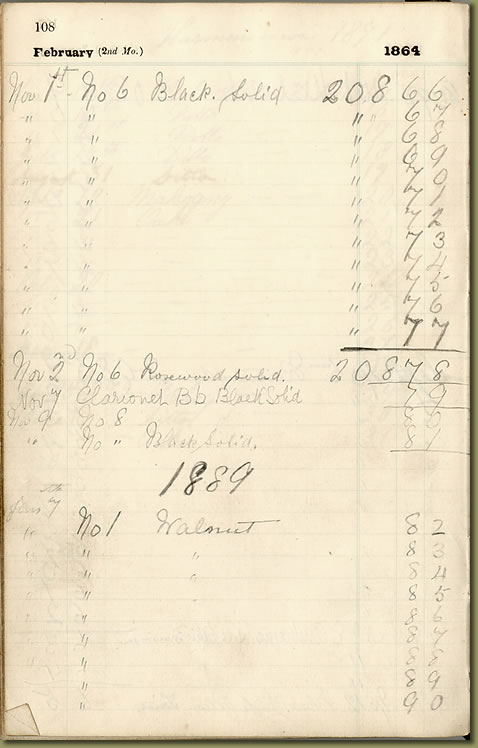 108
February (2nd Mo.) 1864
Nov 1st No 6 Black. Solid 20866
" " " " 67
" " " 68
" " " 69
" " " 70
" " " 71
" " " 72
" " " 73
" " " 74
" " " 75
" " " 76
" " " 77
Nov 2nd No 6 Rosewood solid. 20878
Nov 7 Clarionet Bb Black Solid 79
Nov 9 No 8 80
" No " Black Solid, 81
1889
Jan 7th
" No 1 Walnut 82
" " 83
" " 84
" 85
" 86
" 87
" 88
" 89
" 90